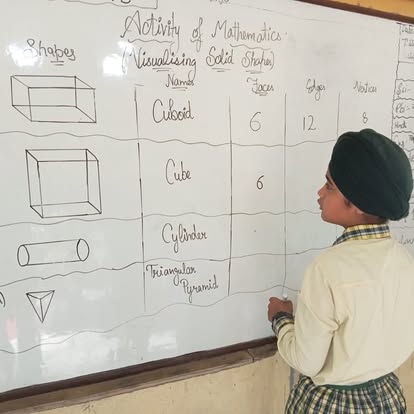 Activity of Mathematics.
(Visualising Solid Shapes)
Shapes Names Faces Edges Vertices
Cuboid 6 12 8
Cube 6
Cylinder
Triangular
Pyramid